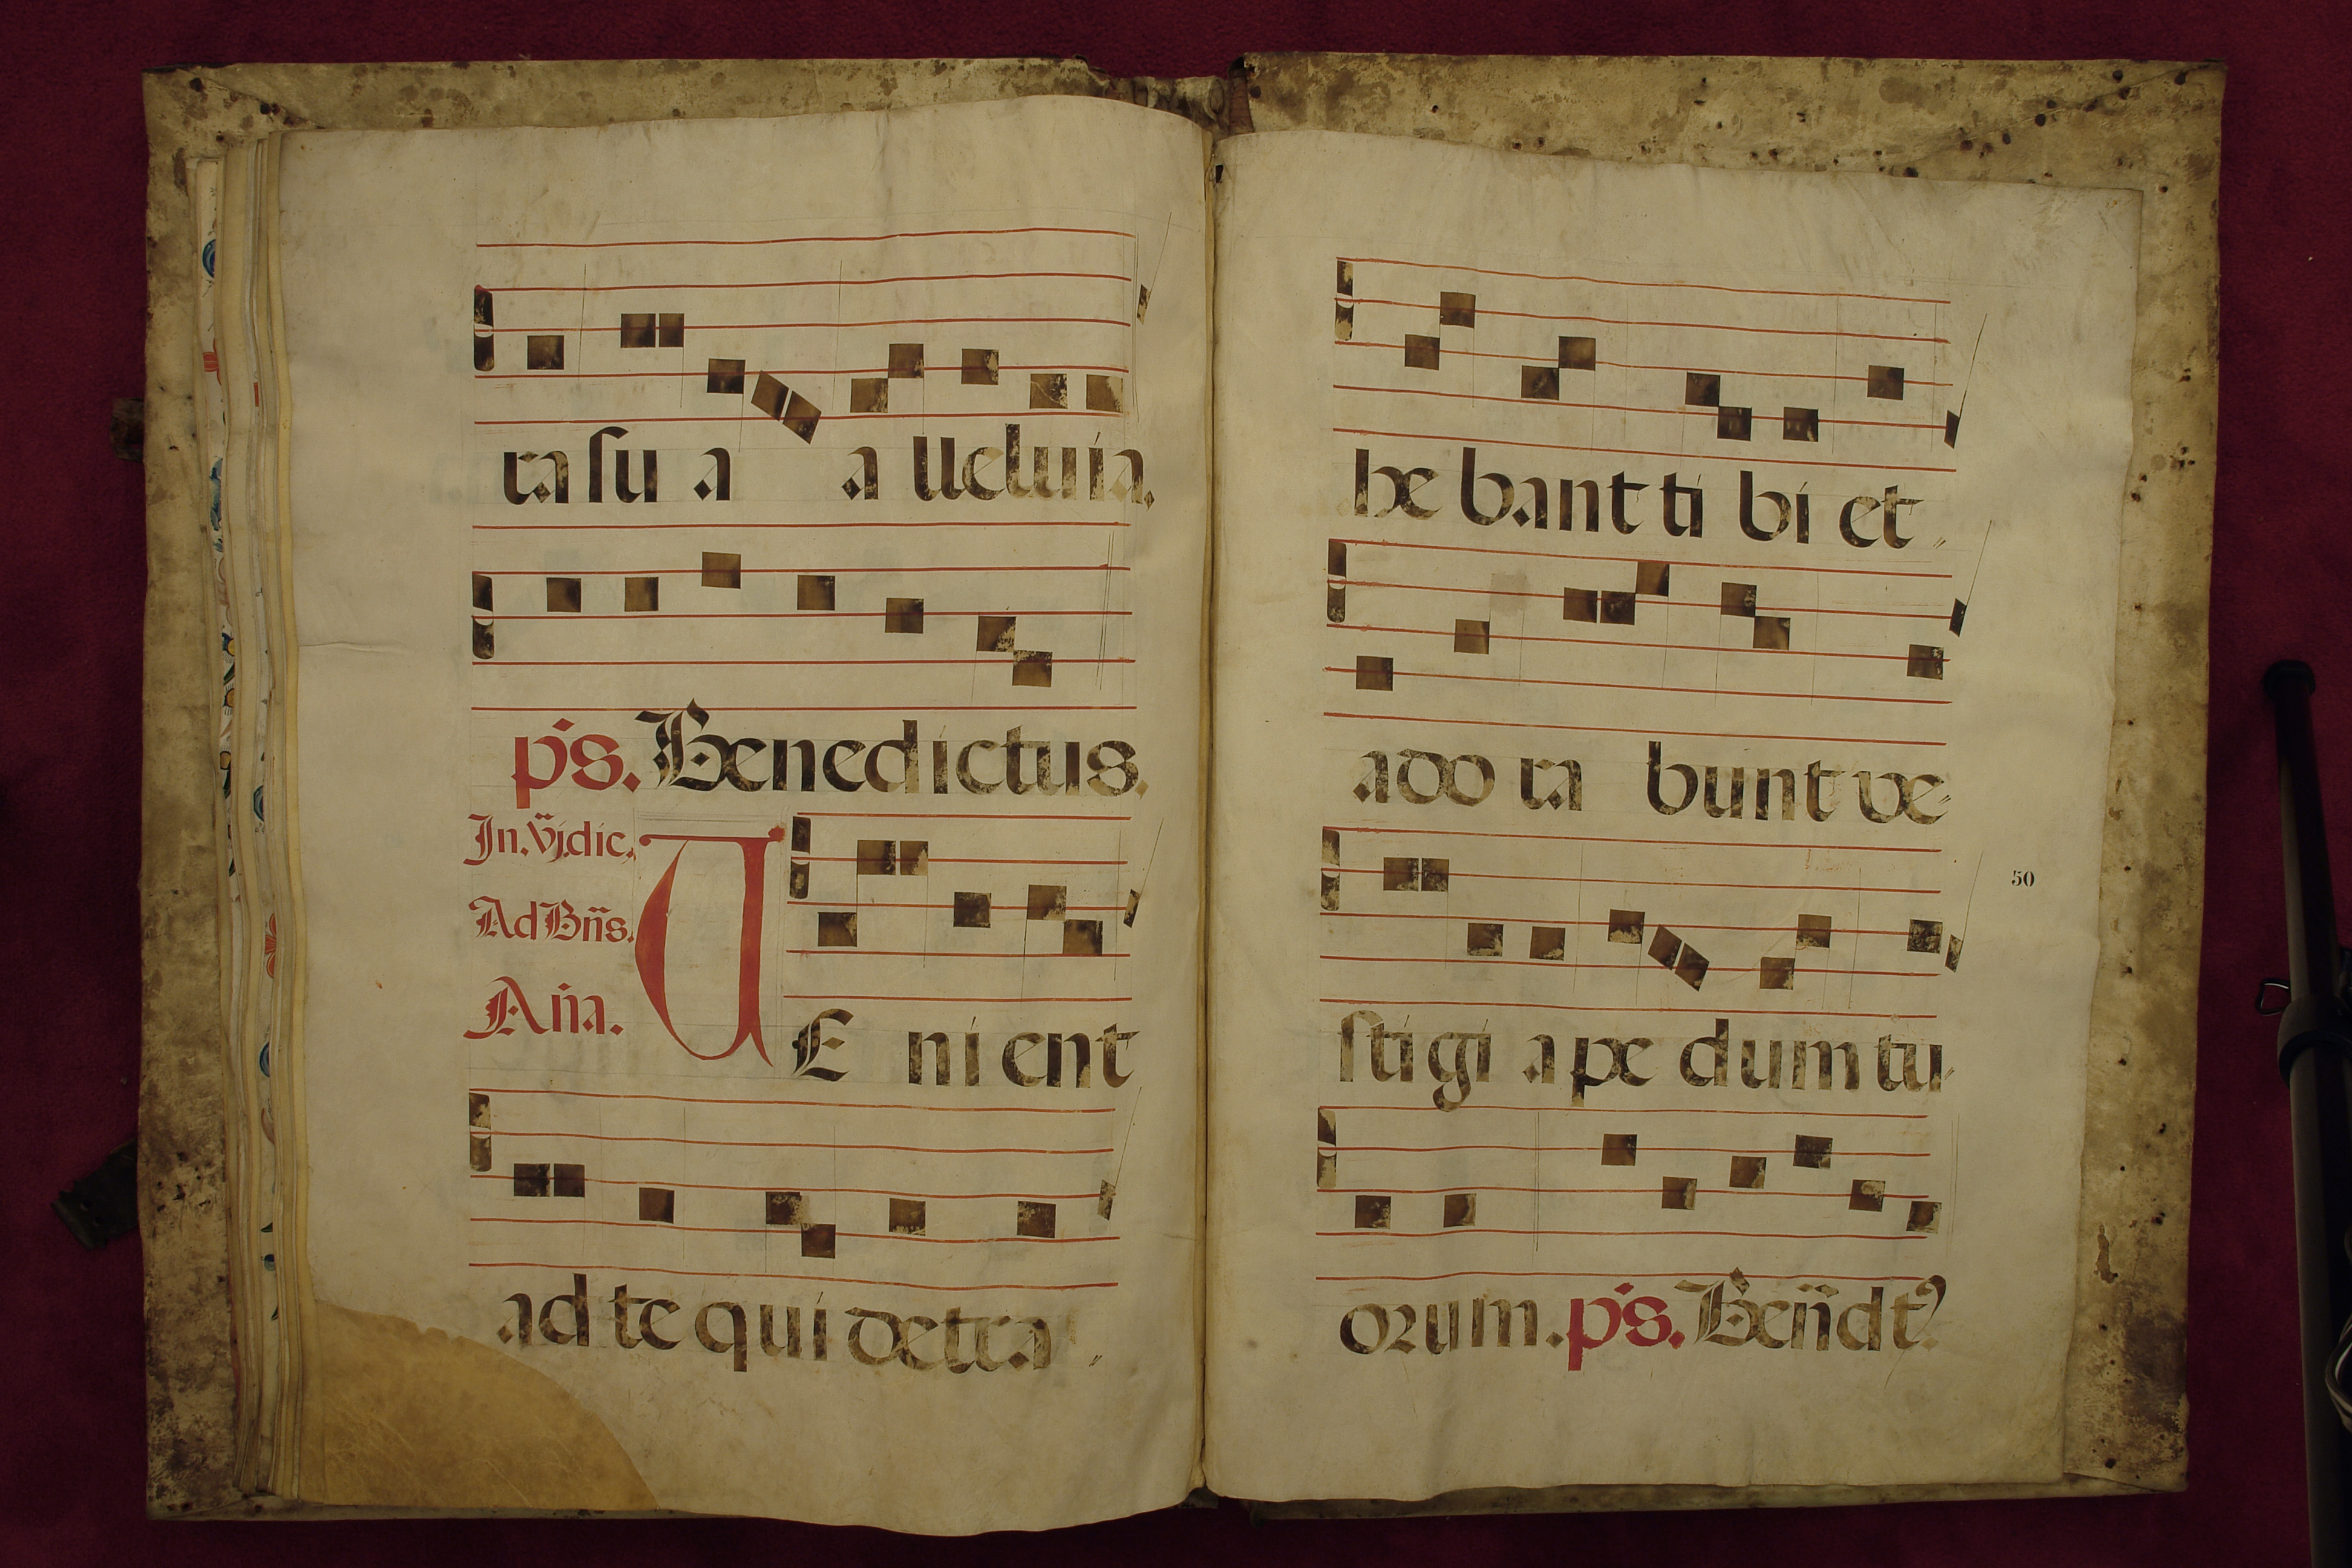 ra su a a lleluia.
ps. Benedictus.
In. vj. dic.
Ad Bñs.
Añа.
VE ni ent
ad te qui detra
he bant ti bi et
ado ra bunt ve
sti gi a pe dum tu
50
orum. ps. Beñdt9